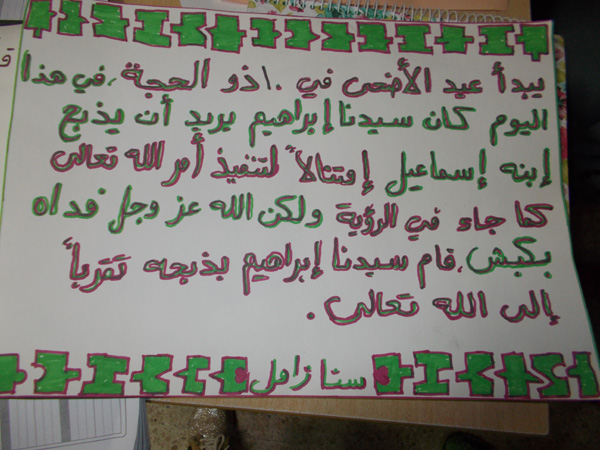 يبدأ عيد الأضحى في ١٠ ذو الحجة ،في هذا
اليوم كان سيدنا إبراهيم يريد أن يذبح
إبنه إسماعيل إمتثالاً لتنفيذ أمر الله تعالى
كما جاء في الرؤية ولكن الله عز وجل فداه
بكبش ،قام سيدنا إبراهيم بذبحه تقرباً
إلى الله تعالى .
سنا زامل